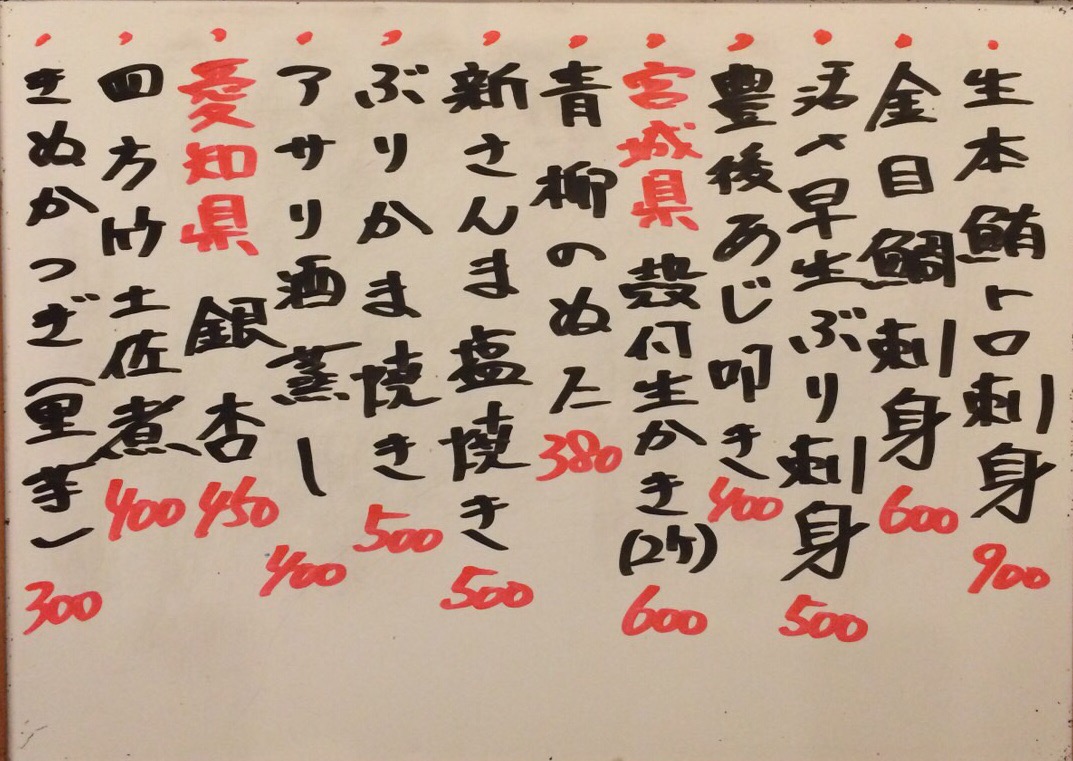 ・生本鮪トロ刺身 900
・金目鯛刺身 600
・活〆早生ぶり刺身 500
・豊後あじ叩き 400
・宮城県 殻付生かき(2ケ) 600
・青柳のぬた 380
・新さんま塩焼き 500
・ぶりかま焼き 500
・アサリ酒蒸し 400
・愛知県 銀杏 450
・四方竹土佐煮 400
・きぬかつぎ(里芋) 300